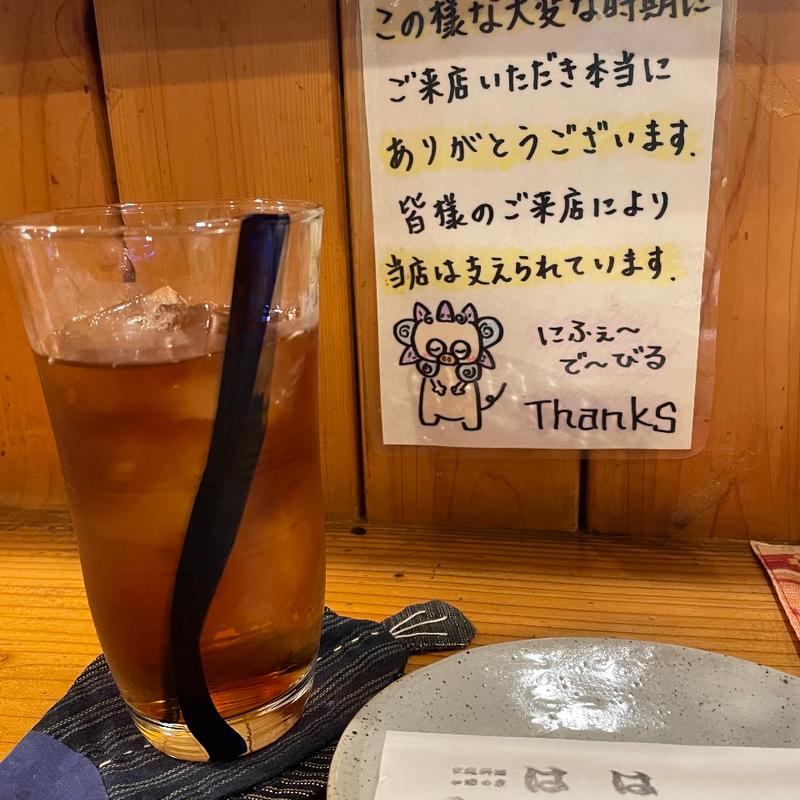 この様な大変な時期に
ご来店いただき本当に
ありがとうございます.
皆様のご来店により
当店は支えられています.
にふぇ〜
で〜びる
Thanks
はし